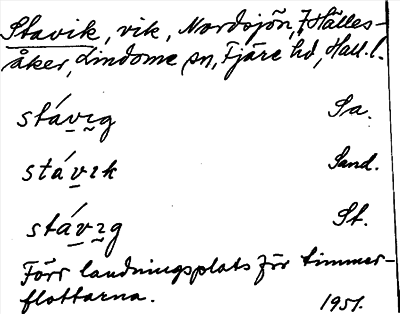 Stavik, vik, Nordsjön, 7 Hälles-
åker, Lindome sn, Fjäre hd, Hall. l.
stávɪg Sa.
stávɪk Sand.
stávɪg St.
Förr landningsplats för timmer-
flottarna. 1951.